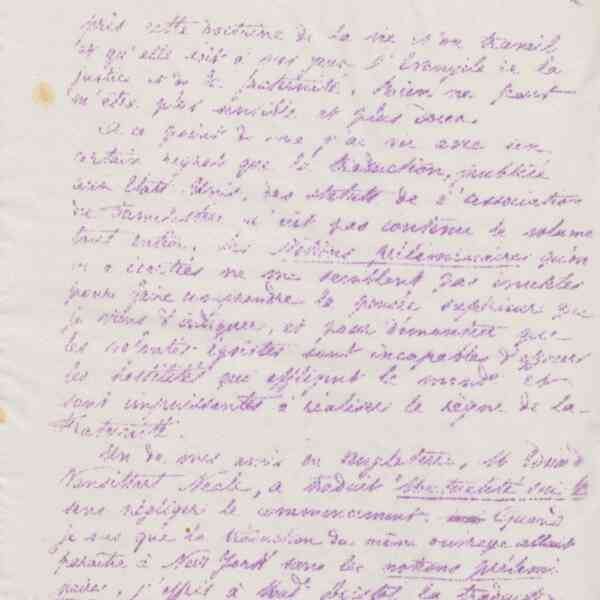 près cette doctrine de la vie et du travail
et qu'elle est à nos yeux l'Evangile de la
justice et de la fraternité. Rien ne peut
m'être plus sensible et plus doux.
A ce point de vue j'ai vu avec un
certain regret que la traduction, publiée
aux Etats Unis, des statuts de l'association
du Familistère n'ait pas contenu le volume
tout entier. Les notions préliminaires qu'on
en a écartées ne me semblent pas inutiles
pour faire comprendre la pensée supérieure que
je viens d'indiquer, et pour démontrer que
les volontés égoïstes sont incapables d'apaiser
les hostilités qui affligent le monde et
sont impuissantes à réaliser le règne de la
Fraternité.
Un de mes amis en Angleterre, M Edward
Vansittart Neale, a traduit
sans négliger le commencement. Quand
je sus que la traduction du même ouvrage allait
paraître à New York sans les notions prélimi
naires, j'offris à la